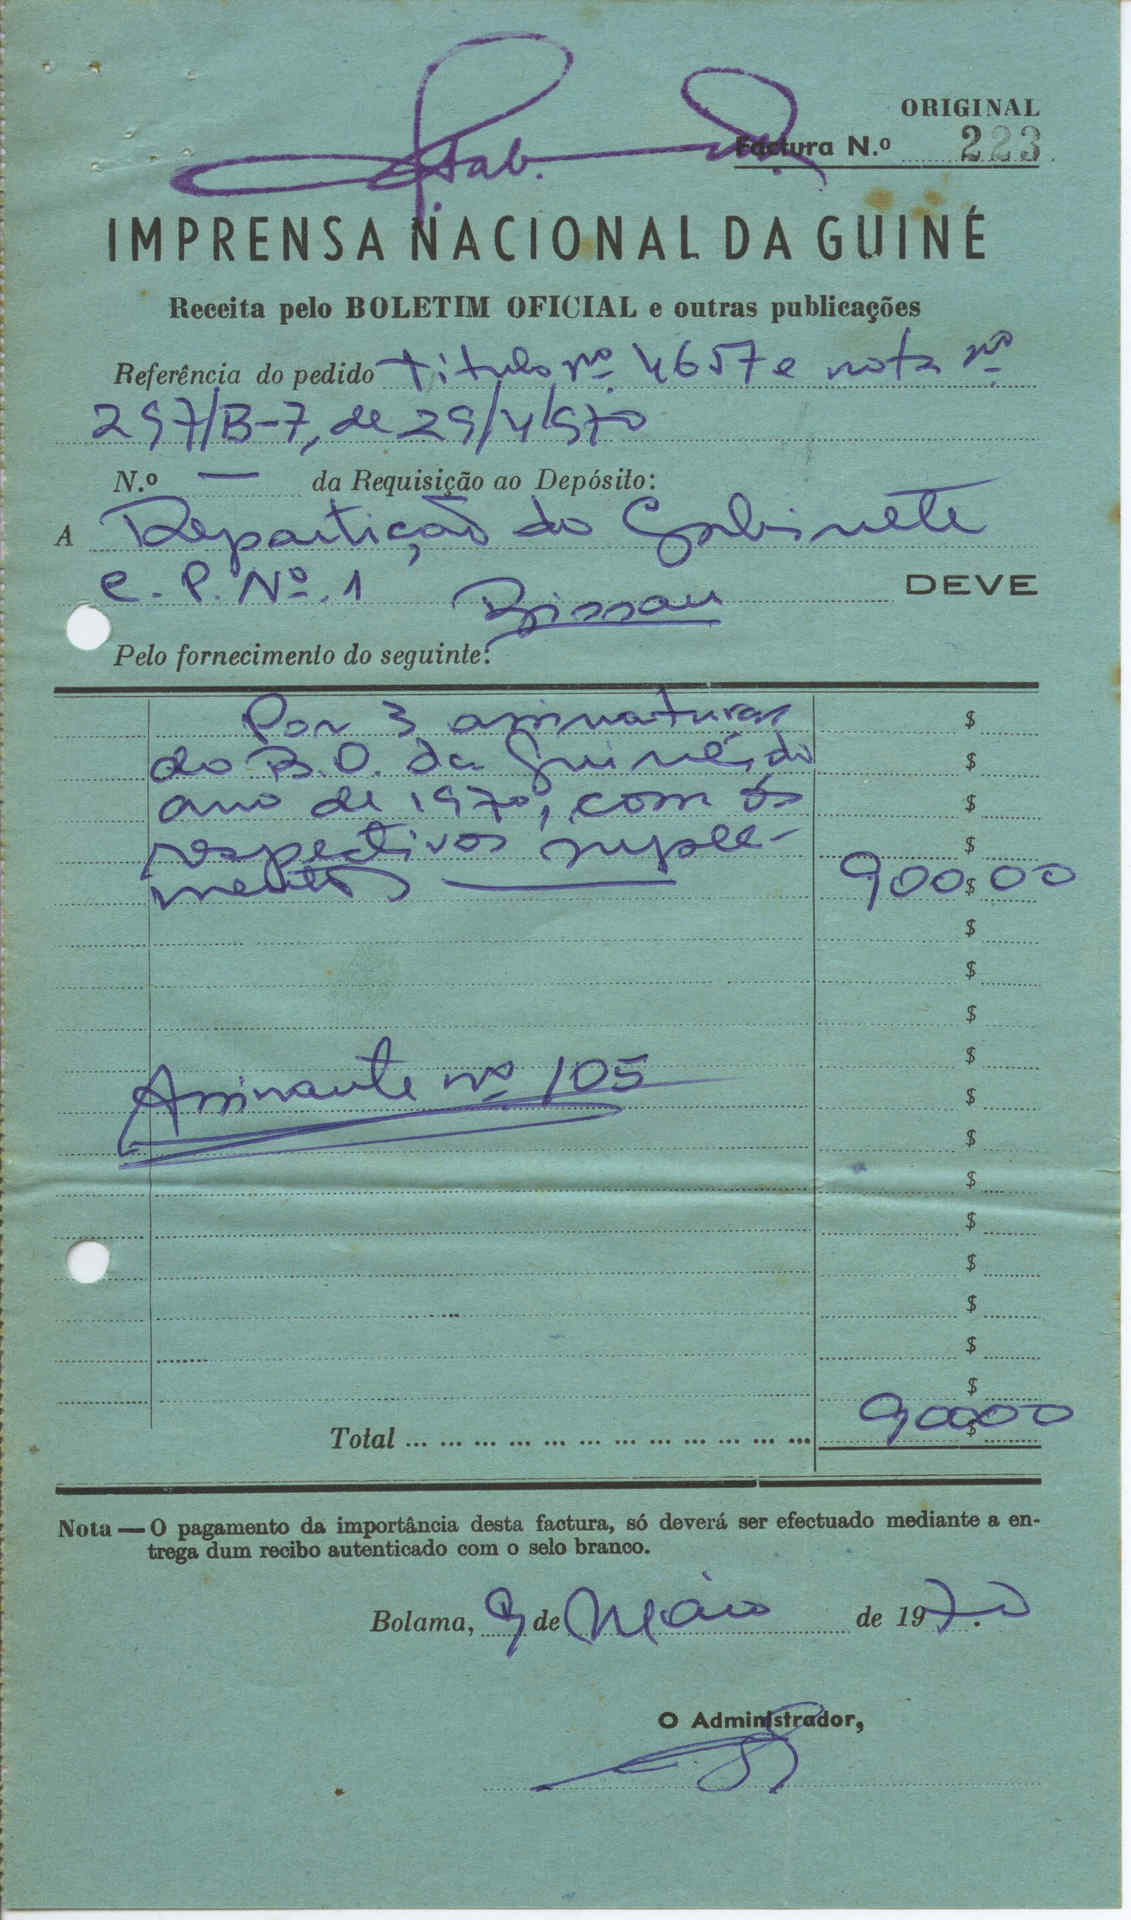 ORIGINAL
Gab.
Factura N.º 223
IMPRENSA NACIONAL DA GUINÉ
Receita pelo BOLETIM OFICIAL e outras publicações
Referência do pedido título nº. 4657 e nota nº
297/B-7, de 29/4/970
N.º — da Requisição ao Depósito:
A Repartição do Gabinete
C. P. Nº. 1 Bissau DEVE
Pelo fornecimento do seguinte:
Por 3 assinaturas $
do B.O. da Guiné, do $
ano de 1970, com os $
respectivos suple- $
mentos — 900$00
$
$
$
$
Assinante nº 105 $
$
$
$
$
$
$
$
Total ... ... ... ... ... ... ... ... ... ... ... ... 900$00
Nota — O pagamento da importância desta factura, só deverá ser efectuado mediante a en-
trega dum recibo autenticado com o selo branco.
Bolama, 9 de Maio de 1970.
O Administrador,